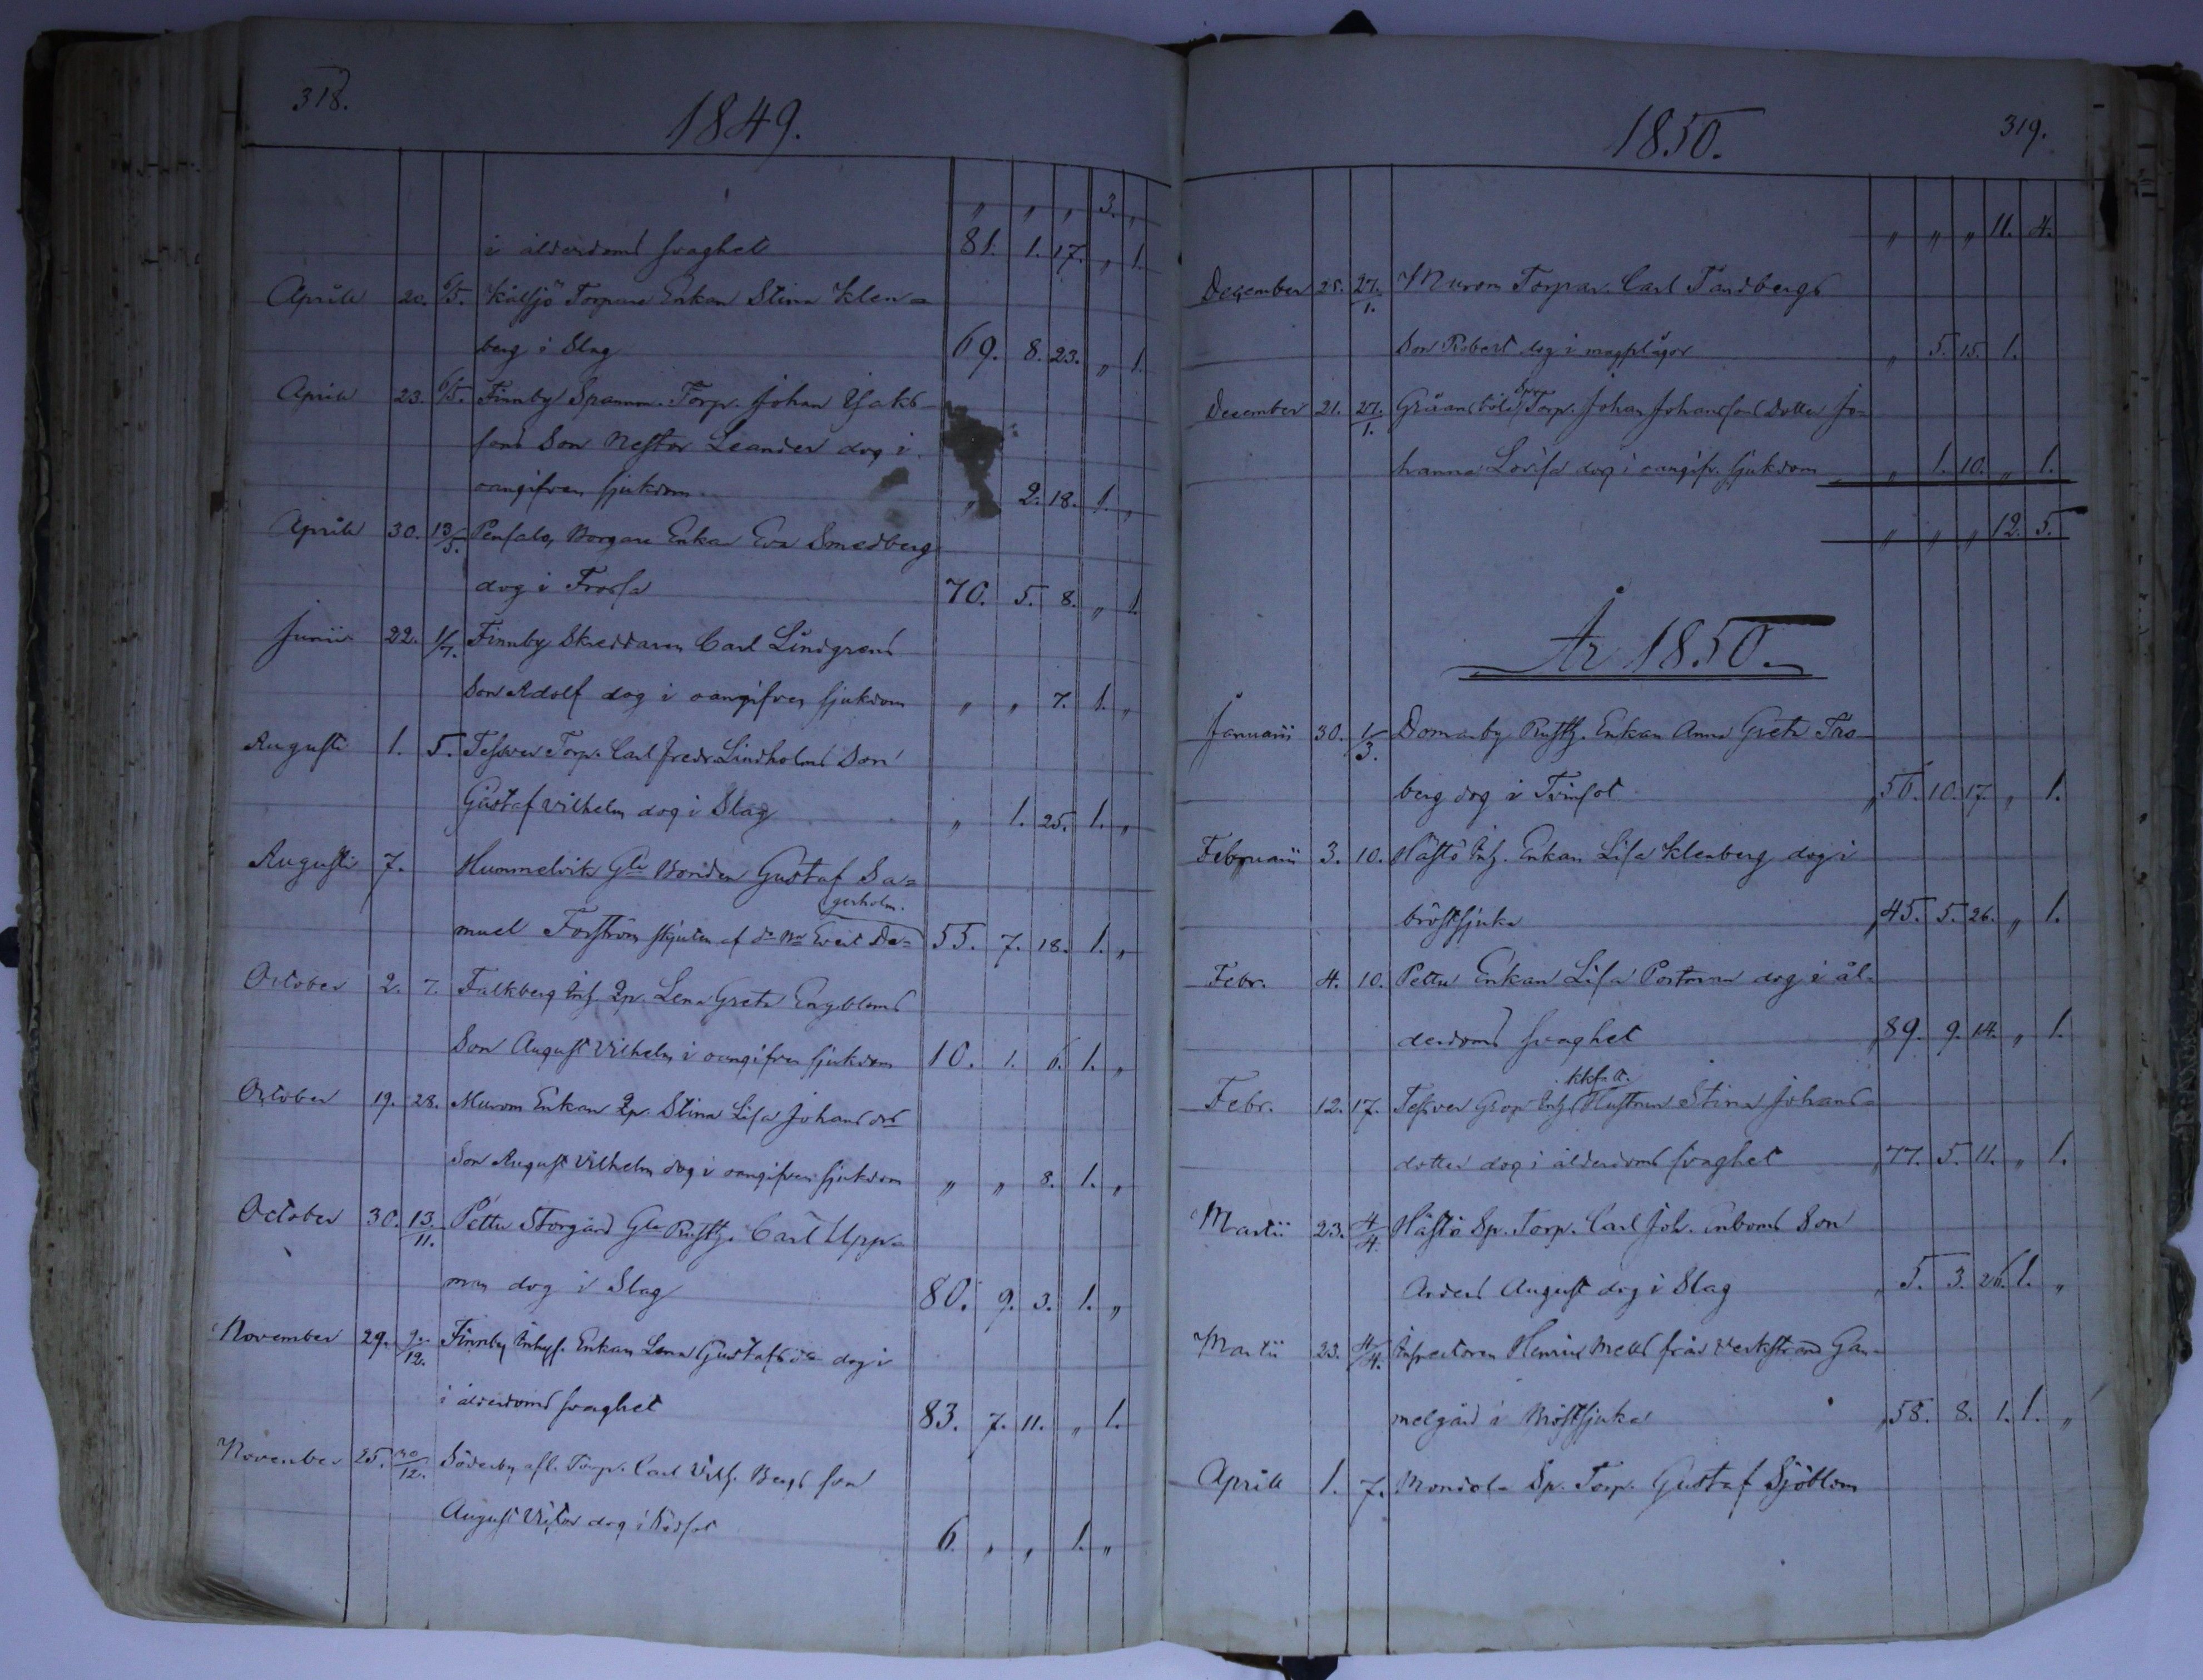 318.
1849.
„ „ „ 3. „
i ålderdoms svaghet 81. 1. 17. „ 1.
Aprill 20. 6/5. Kålsjö Torpare Enkan Stina Klen=
berg i Slag 69. 8. 23. „ 1.
Aprill 23. 6/5. Finnby Spannm. Torp. Johan Isaks-
sons Son Nestor Leander dog i
oangifven sjukdom „ 2. 18. 1. „
Aprill 30. 13/5. Pensalo, Borgare Enkan Eva Smedberg
dog i Frossa 70. 5. 8. „ 1.
Junii 22. 1/7. Finnby Skreddaren Carl Lindgrens
Son Adolf dog i oangifven sjukdom „ „ 7. 1. „
Augusti 1. 5. Tessver Torp. Carl Fredr. Lindholms Son
Gustaf Vilhelm dog i Slag „ 1. 25. 1. „
Augusti 7. Hummelvik Gle Bonden Gustaf Sa=
gerholm.
muel Forström skjuten af Evert Da= 55. 7. 18. 1. „
October 2. 7. Falkberg Inh. Qp. Lena Greta Engbloms
Son August Vilhelm i oangifven sjukdom 10. 1. 6. 1. „
October 19. 28. Murom Enkan Qp. Stina Lisa Johans drs
Son August Vilhelm dog i oangifven sjukdom „ „ 8. 1. „
October 30. 13/11. Pettu Storgård Gle Rusth. Carl Upp=
man dog i Slag 80. 9. 3. 1. „
November 29. 9/12. Finnby Inhys. Enkan Lena Gustafsdr dog i
i ålderdoms svaghet 83. 7. 11. „ 1.
November 25. 30/12. Söderby Torp. Carl Vilh. Bergs son
August Victor dog i Rödsot 6. „ „ 1. „
1850.
319.
„ „ „ 11. 4.
December 25. 27/1. Murom Torpar. Carl Tandbergs
Son Robert dog i magplågor „ 5. 15. 1.
December 21. 27/1. Torp. Johan Johanssons Dotter Jo=
hanna Lovisa dog i oangifv. sjukdom „ 1. 10. „ 1.
„ „ „ 12. 5.
År 1850.
Januarii 30. 1/3. Domarby Rusth. Enkan Anna Greta Fro-
berg dog i Tvinsot „ 56. 10. 17. „ 1.
Februarii 3. 10. Hästö Inh. Enkan Lisa Klenberg dog i
bröstsjuka „ 45. 5. 26. „ 1.
Febr. 4. 10. Pettu Enkan Lisa Portman dog i ål-
derdoms svaghet „ 89. 9. 14. „ 1.
Febr. 12. 17. Tessver Inh. Hustrun Stina Johans=
dotter dog i ålderdoms svaghet „ 77. 5. 11. „ 1.
Martii 23. 4/4. Hästö Sp. Torp. Carl Joh. Enboms Son
Anders August dog i Slag „ 5. 3. 26. 1. „
Martii 23. 4/4. Inspectoren Henric från Verkstrand Gam-
melgård i Bröstsjuka „ 58. 8. 1. 1. „
Aprill 1. 7. Mondola Sp. Torp. Gustaf Sjöblom